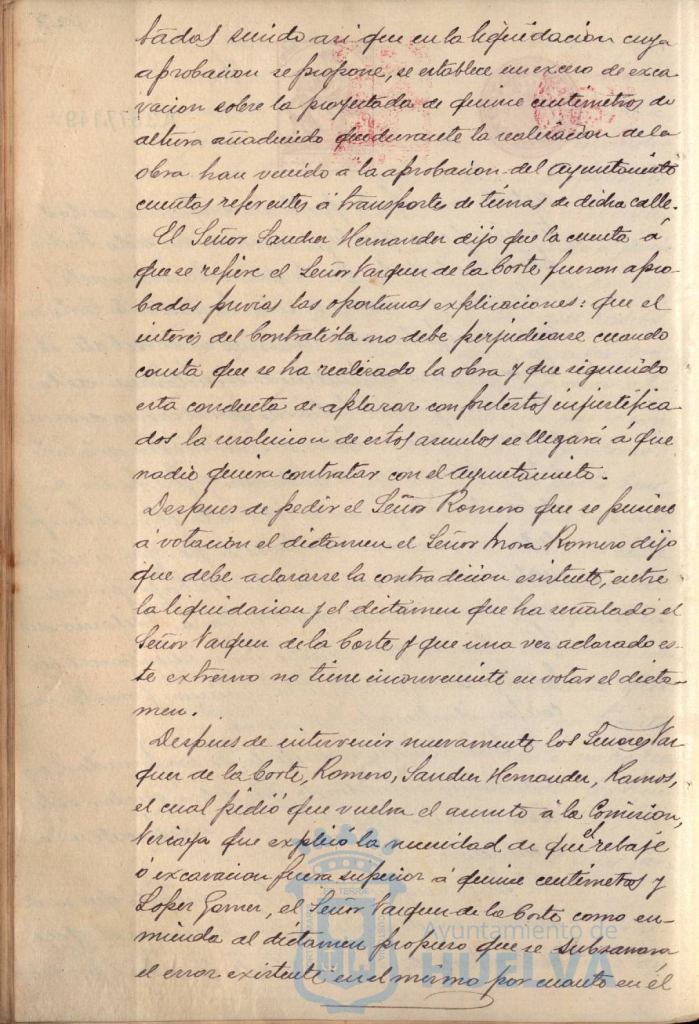 tados siendo asi que en la liquidacion cuya
aprobacion se propone, se establece un exceso de exca
vacion sobre la proyectada de quince centimetros de
altura añadiendo que durante la realizacion de la
obra han venido a la aprobacion del Ayuntamiento
cuentas referentes á transporte de tierras de dicha calle.
El Señor Sanchez Hernandez dijo que la cuenta á
que se refiere el Señor Vazquez de la Corte fueron apro-
badas previas las oportunas explicaciones: que el
interes del Contratista no debe perjudicarse cuando
consta que se ha realizado la obra y que siguiendo
esta conducta de aplazar con pretestos injustifica
dos la resolucion de estos asuntos se llegará á que
nadie quiera contratar con el Ayuntamiento.
Despues de pedir el Señor Romero que se pusiere
á votacion el dictamen el Señor Mora Romero dijo
que debe aclararse la contradicion esistente, entre
la liquidacion y el dictamen que ha señalado el
Señor Vazquez de la Corte y que una vez aclarado es-
te extremo no tiene inconveniente en votar el dicta-
men.
Despues de intervenir nuevamente los Señores Vaz
quez de la Corte, Romero, Sanchez Hernandez, Ramos,
el cual pidió que vuelva el asunto á la Comision,
Vizcaya que explicó la necesidad de que el rebaje
ó excavacion fuera superior á quince centimetros y
Lopez Gomez, el Señor Vazquez de la Corte como en-
mienda al dictamen propuso que se subsanara
el error existente en el mismo por cuanto en él
Ayuntamiento de
HUELVA